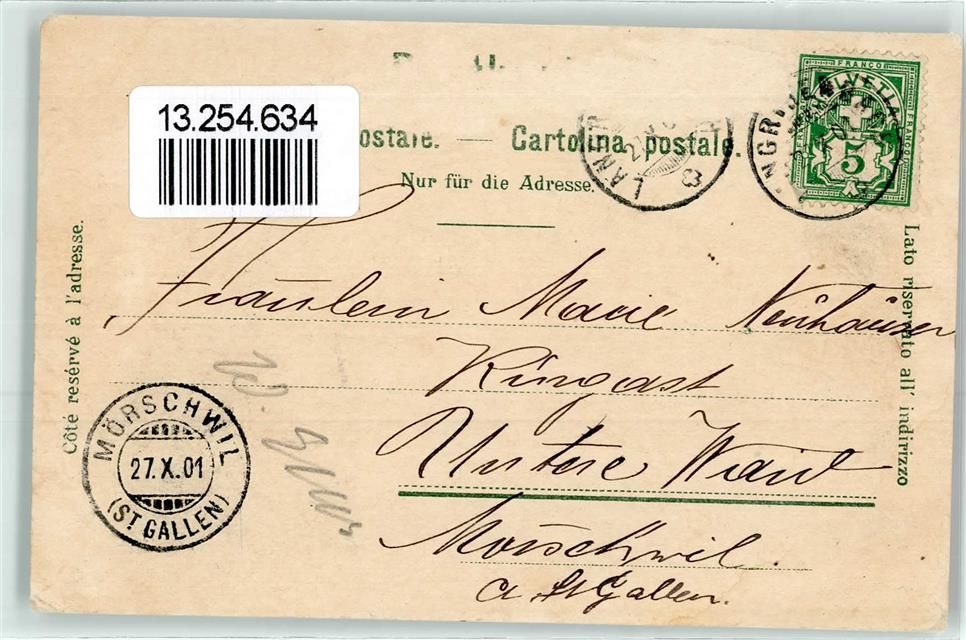 13.254.634
ostale. — Cartolina postale.
Nur für die Adresse.
FRANCO
HELVETIA
5
Côté reservé à l'adresse.
Lato riservato all' indirizzo
Fräulein Marie Neuhäuser
Ringast
Untere Waid
Mörschwil.
a. St Gallen.
MÖRSCHWIL
27.X.01
(ST GALLEN)